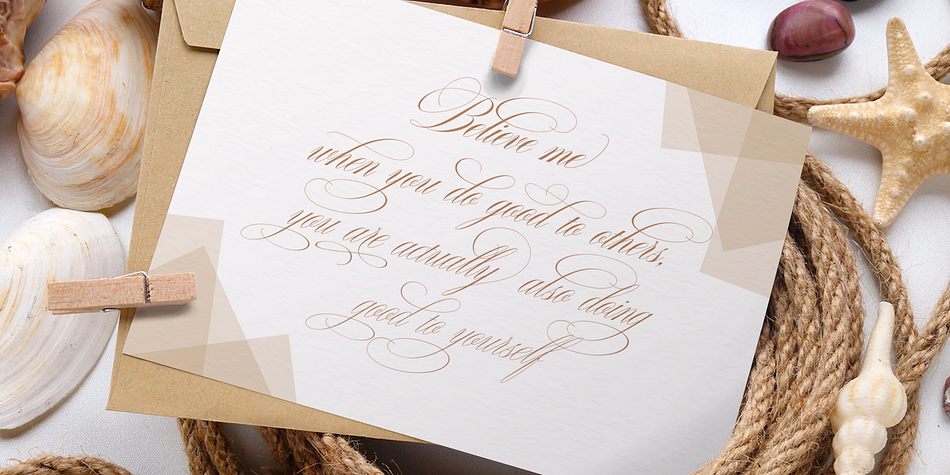 Believe me
when you do good to others,
you are actually also doing
good to yourself